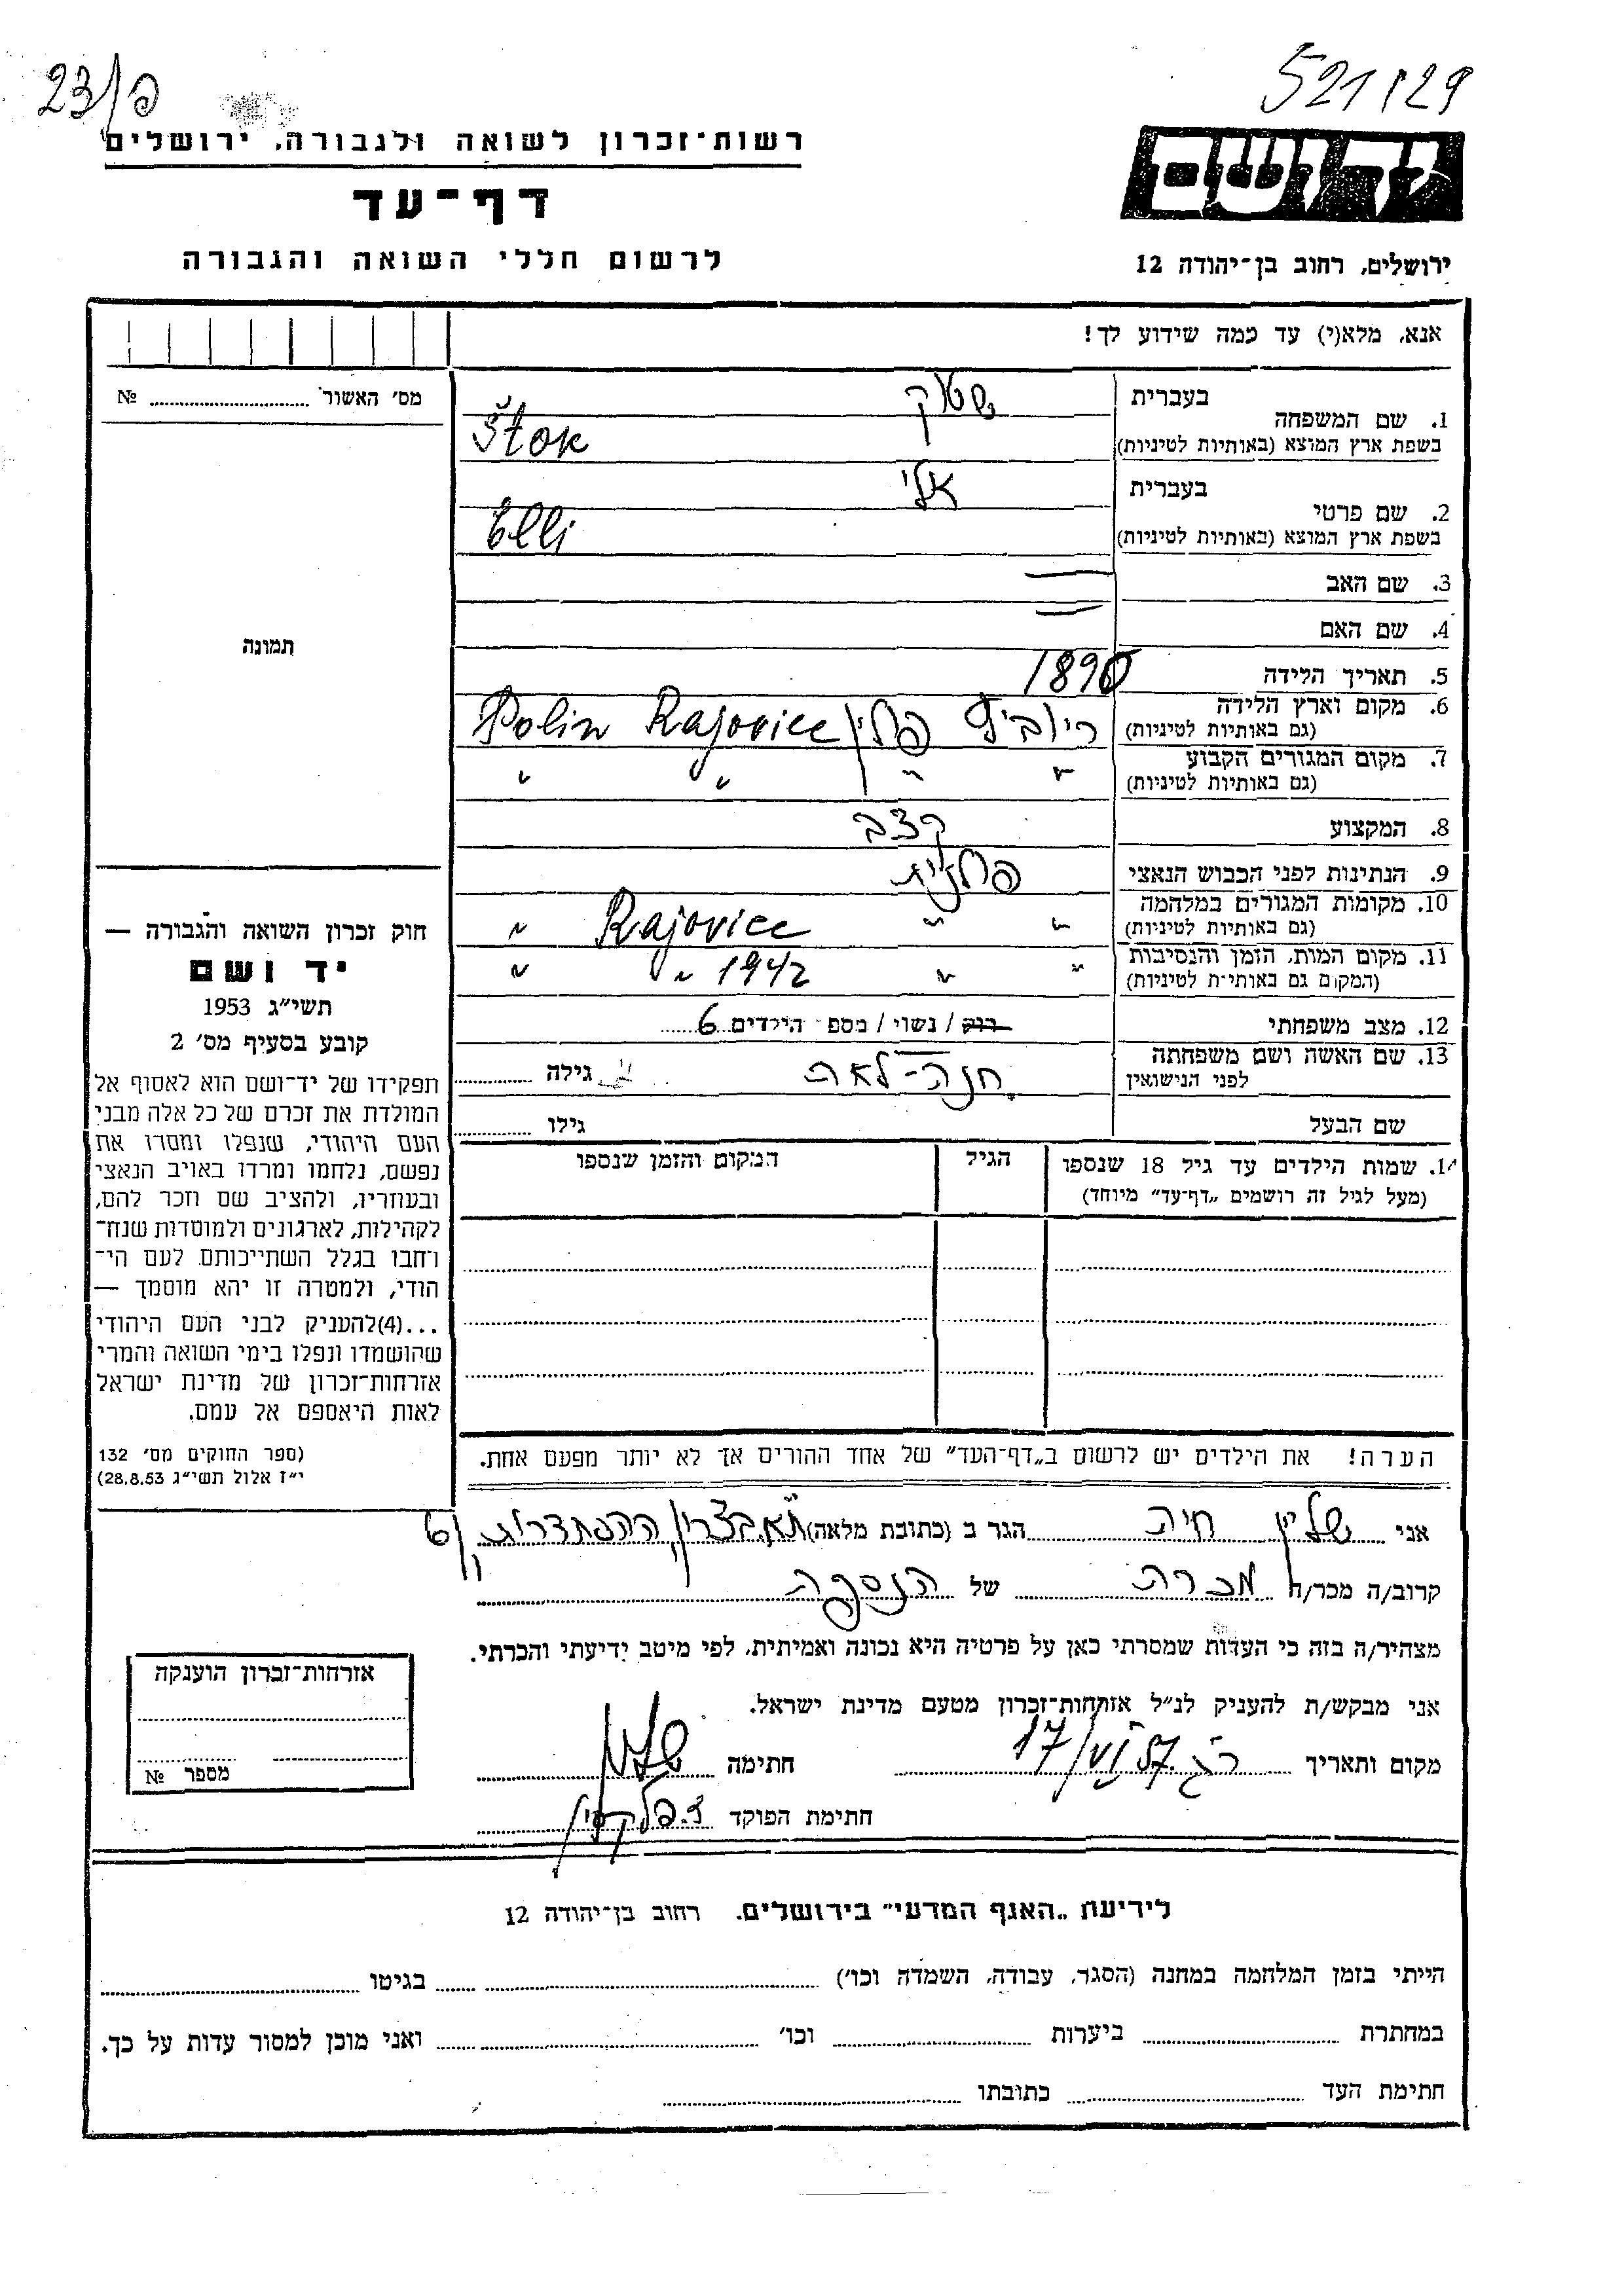 23/פ
521/29
רשות-זכרון לשואה ולגבורה, ירושלים
דף-עד
לרשום חללי השואה והגבורה
יד ושם
ירושלים, רחוב בן-יהודה 12
אנא, מלא(י) עד כמה שידוע לך!
מס׳ האשור № ........
תמונה
חוק זכרון השואה והגבורה —
יד ושם
תשי״ג 1953
קובע בסעיף מס׳ 2
תפקידו של יד-ושם הוא לאסוף אל
המולדת את זכרם של כל אלה מבני
העם היהודי, שנפלו ומסרו את
נפשם, נלחמו ומרדו באויב הנאצי
ובעוזריו, ולהציב שם וזכר להם,
לקהילות, לארגונים ולמוסדות שנח-
רחבו בגלל השתייכותם לעם הי-
הודי, ולמטרה זו יהא מוסמך —
...(4)להעניק לבני העם היהודי
שהושמדו ונפלו בימי השואה והמרי
אזרחות-זכרון של מדינת ישראל
לאות היאספם אל עמם.
(ספר החוקים מס׳ 132
י״ז אלול תשי״ג 28.8.53)
בעברית שטוק
1. שם המשפחה
בשפת ארץ המוצא (באותיות לטיניות) Štok
בעברית אלי
2. שם פרטי
בשפת ארץ המוצא (באותיות לטיניות) Elli
3. שם האב —
4. שם האם —
5. תאריך הלידה 1890
6. מקום וארץ הלידה
(גם באותיות לטיניות) פולין Polin Rajovice
7. מקום המגורים הקבוע
(גם באותיות לטיניות) " " " "
8. המקצוע קצב
9. הנתינות לפני הכבוש הנאצי פולנית
10. מקומות המגורים במלחמה
(גם באותיות לטיניות) " " Rajovice "
11. מקום המות, הזמן והנסיבות
(המקום גם באותיות לטיניות) " " 1942 " "
12. מצב משפחתי רוק / נשוי / מספ׳ הילדים 6
13. שם האשה ושם משפחתה
לפני הנישואין חנה-לאה גילה
שם הבעל גילו ........
14. שמות הילדים עד גיל 18 שנספו הגיל המקום והזמן שנספו
(מעל לגיל זה רושמים „דף-עד״ מיוחד)
הערה! את הילדים יש לרשום ב„דף-העד״ של אחד ההורים אך לא יותר מפעם אחת.
אני שליין חיה הגר ב (כתובת מלאה) ת״א. בצרון ההסתדרות 6
קרוב/ה מכר/ה מכרה של הנספה
מצהיר/ה בזה כי העדות שמסרתי כאן על פרטיה היא נכונה ואמיתית, לפי מיטב ידיעתי והכרתי.
אני מבקש/ת להעניק לנ״ל אזרחות-זכרון מטעם מדינת ישראל.
מקום ותאריך ר״ג 17/VI 57 חתימה שליין
חתימת הפוקד
אזרחות-זכרון הוענקה
מספר №
לידיעת „האגף המדעי״ בירושלים, רחוב בן-יהודה 12
הייתי בזמן המלחמה במחנה (הסגר, עבודה, השמדה וכו׳) ........ בגיטו ........
במחתרת ........ ביערות ........ וכו׳ ........ ואני מוכן למסור עדות על כך.
חתימת העד ........ כתובתו ........